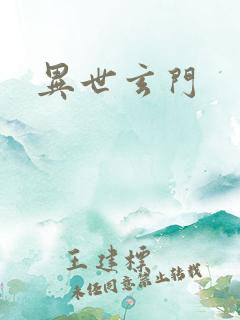 異世玄門
王建標
未经同意禁止转载